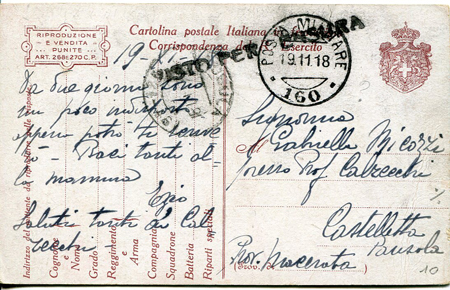 RIPRODUZIONE
E VENDITA
PUNITE
ART. 268 E 270 C.P.
Cartolina postale Italiana in
Corrispondenza del R. Esercito
VISTO PER CENSURA
POSTA MILITARE
19.11.18
160
19
Da due giorni sono
un poco
appena potrò ti scrive
rò - Baci tanti al
la mamma
Ezio
Saluti tanti ai Cal
zecchi
Signorina
Gabriella Micozzi
presso Prof. Calzecchi
Castelletta
Pausola
Prov. Macerata
(Prov. di
10
Cognome
e
Nome
Grado
Reggimento
e
Arma
Compagnia
Squadrone
Batteria
Riparti speciali